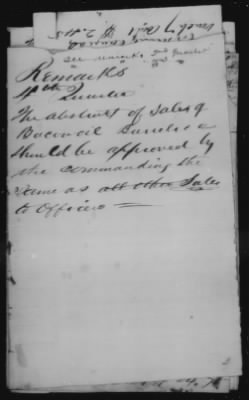 see remarks 2nd Quarter
Remarks
4th Quarter
The abstract of Sales of
Bacon
should be approved by
the commanding the
same as all other Sales
to Officers